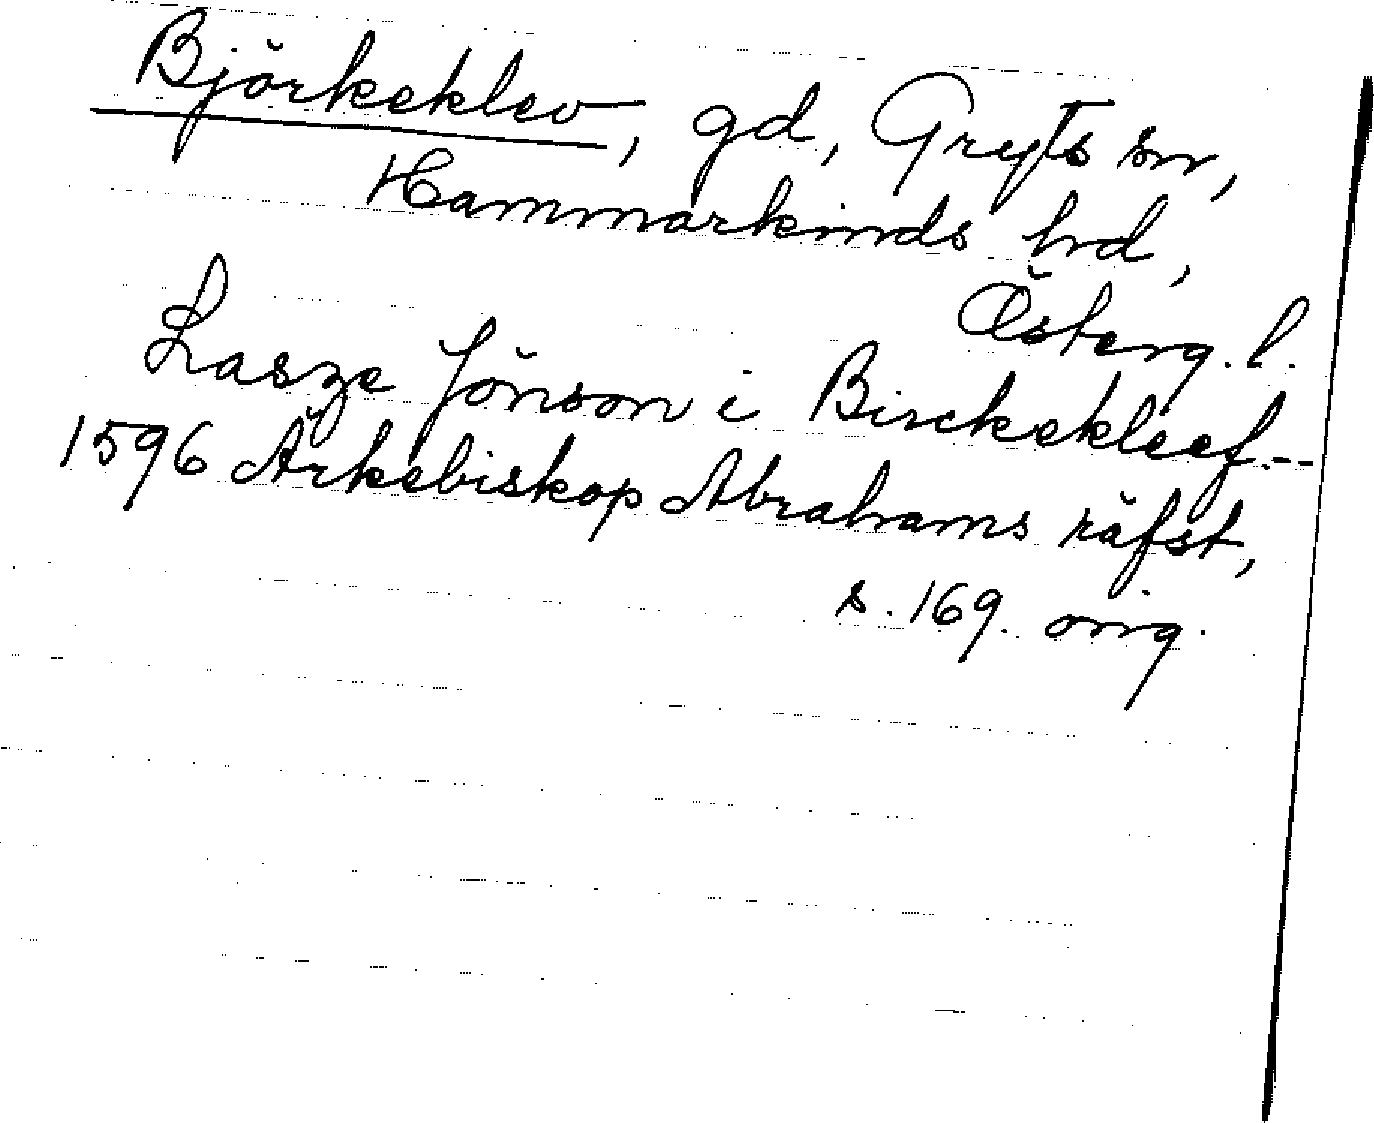 Björkeklev, gd, Gryts sn,
Hammarkinds hd,
Österg. l.
Lasze Jönson i Birckekleef.--
1596 Ärkebiskop Abrahams räfst,
s. 169. orig.